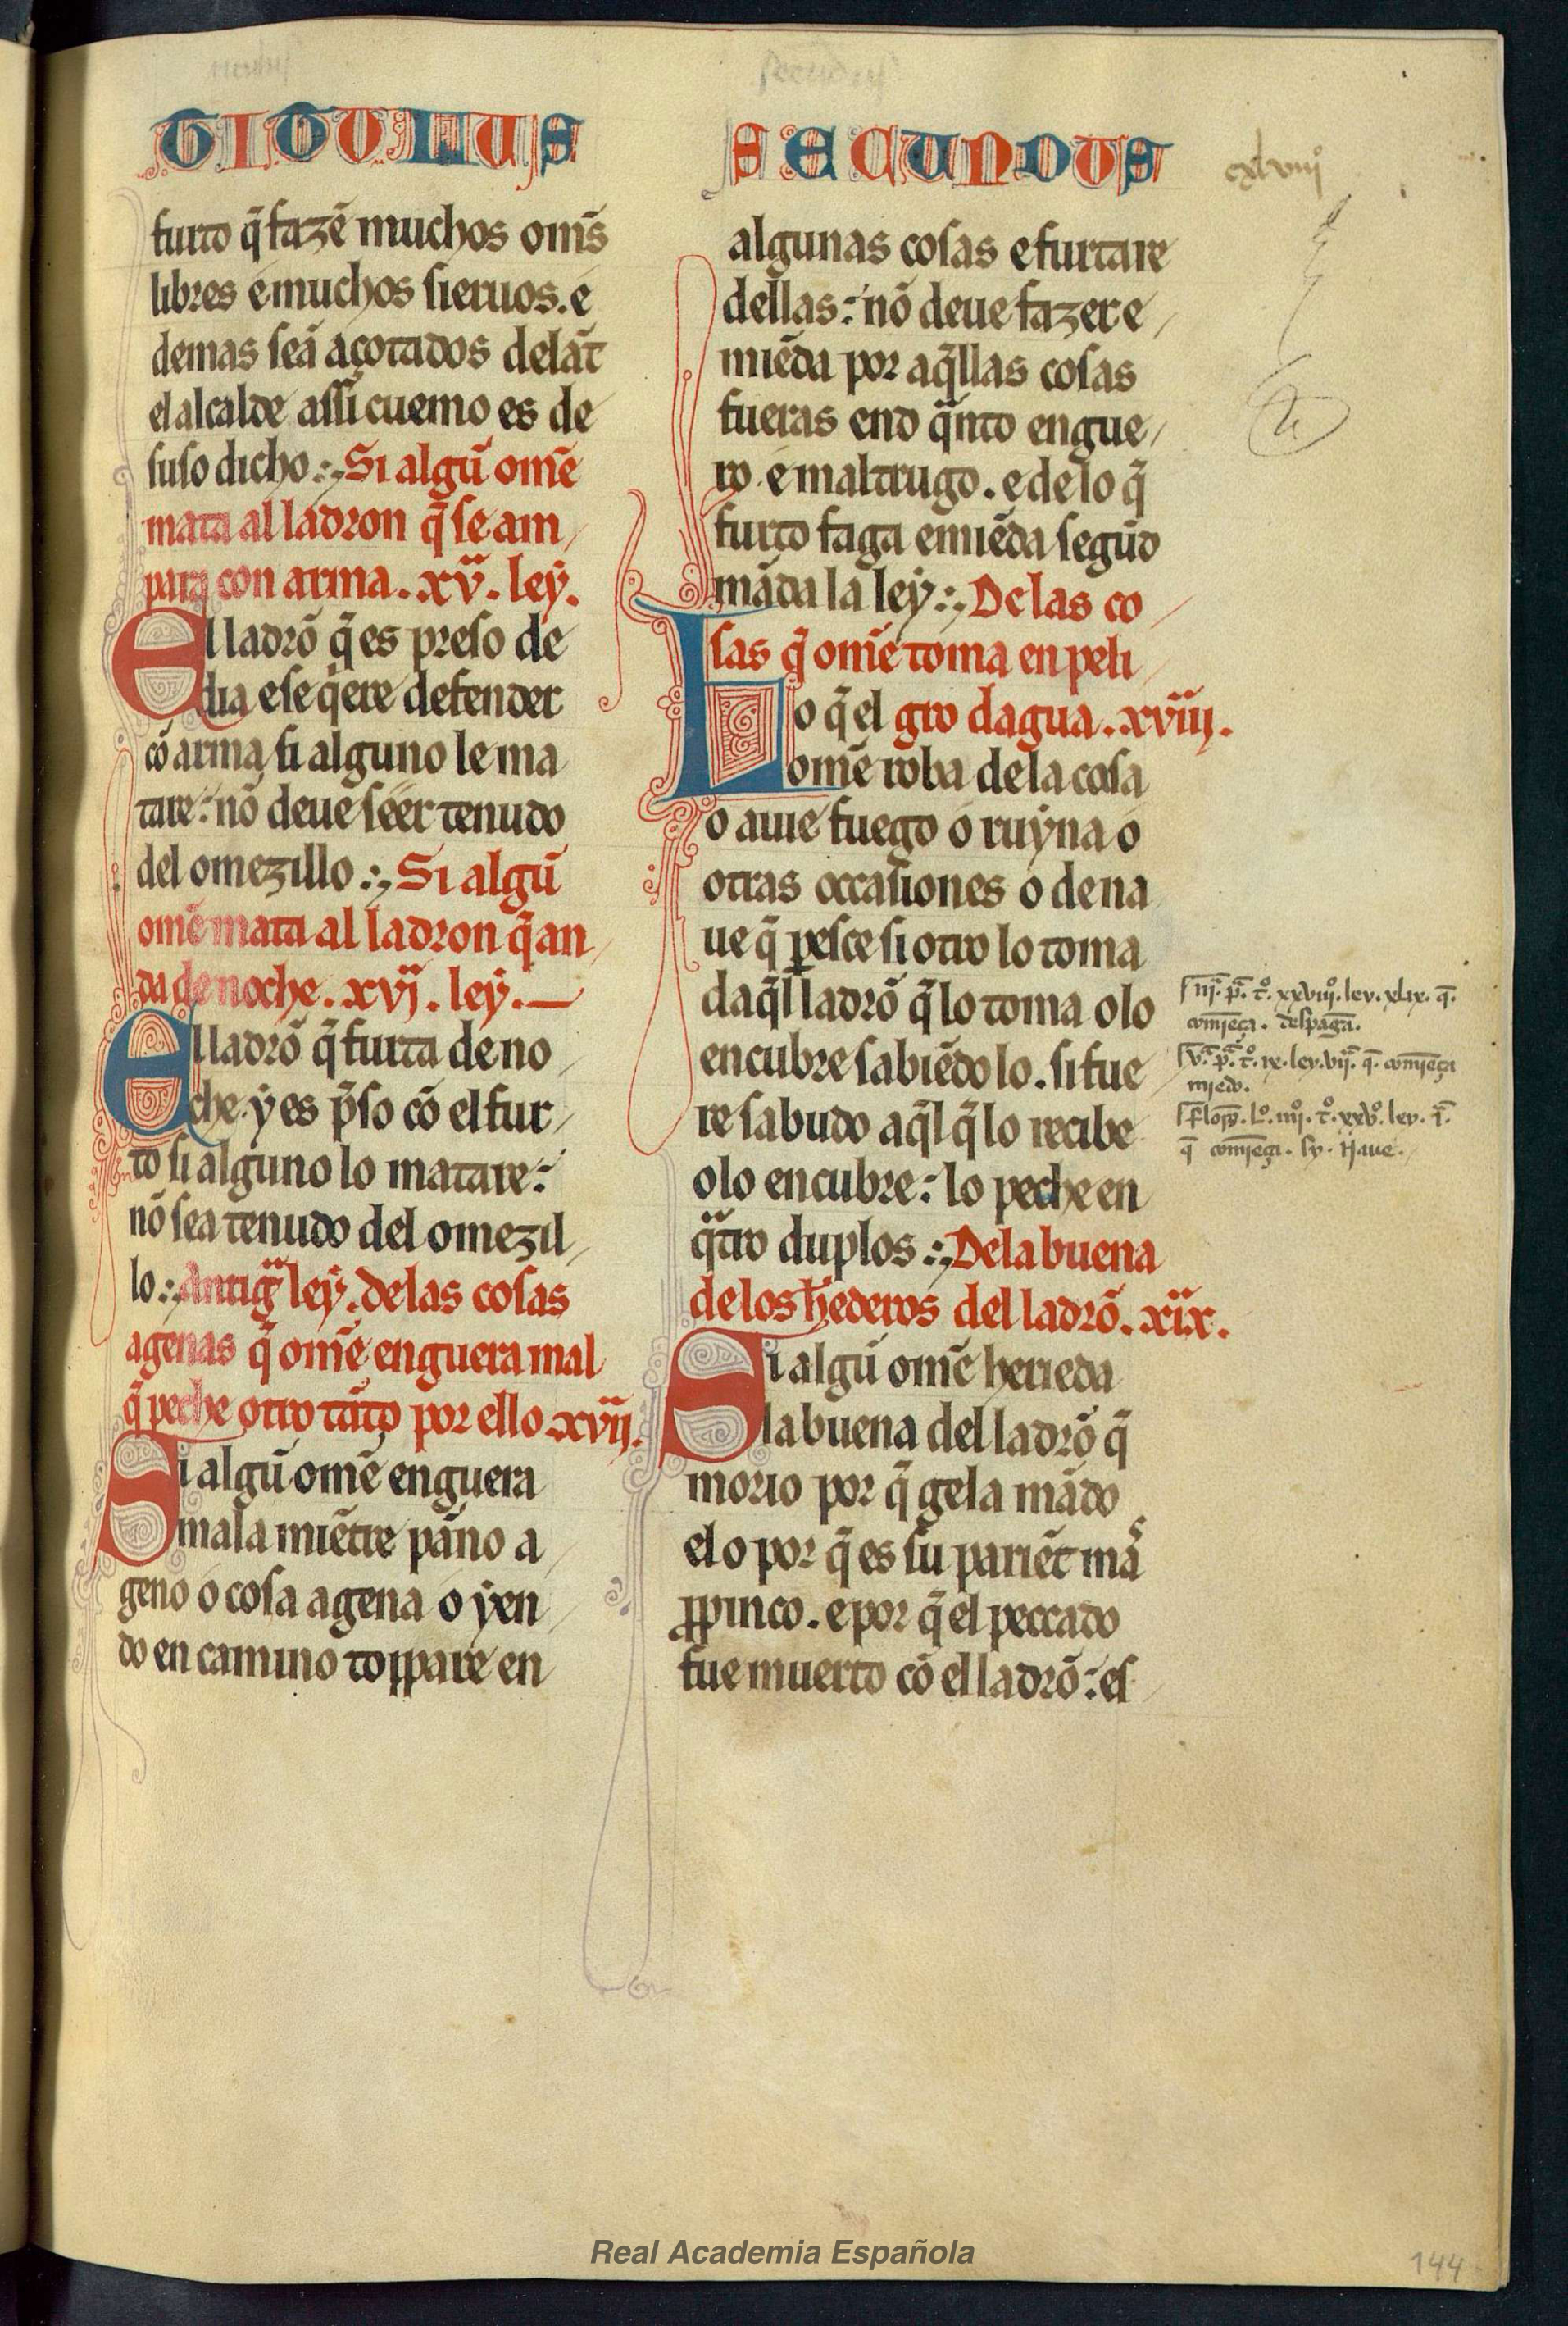 TITULUS
furto q̃ fazẽ muchos om̃s
libres e muchos sieruos. e
demas seã açotados delãt
el alcalde assi cuemo es de
suso dicho :, Si algũ om̃e
mata al ladron q̃ se am
para con arma. xv. ley.
El ladrõ q̃ es preso de
dia e se q̃ere defender
cõ arma si alguno le ma
tare: nõ deue seer tenudo
del omezillo :, Si algũ
om̃e mata al ladron q̃ an
da de noche. xvj. ley.
El ladrõ q̃ furta de no
che. y es p̃so cõ el fur
to si alguno lo matare:
nõ sea tenudo del omezil
lo :, Antigᵃ ley. delas cosas
agenas q̃ om̃e enguera mal
q̃ peche otro tãto por ello xvij.
Si algũ om̃e enguera
mala miẽtre pãno a
geno o cosa agena o yen
do en camino toppare en
SECUNDUS
cxlviijº
algunas cosas e furtare
dellas: nõ deue fazer e
miẽda por aq̃llas cosas
fueras end q̃nto engue
ro. e maltrugo. e de lo q̃
furto faga emiẽda segũd
mãda la ley :, Delas co
sas q̃ om̃e toma en peli
gro dagua. xviij.
Lo q̃ el
om̃e roba de la cosa
o auie fuego o ruyna o
otras occasiones o de na
ue q̃ ꝑesce si otro lo toma
daq̃l ladrõ q̃ lo toma o lo
encubre sabiẽdo lo. si fue
re sabudo aq̃l q̃ lo recibe
o lo encubre: lo peche en
qᵃtro duplos :, Dela buena
de los h̃ederos del ladrõ. xix.
Si algũ om̃e herieda
la buena del ladrõ q̃
morio por q̃ gela mãdo
el o por q̃ es su pariẽt mã
ꝓpinco. e por q̃ el peccado
fue muerto cõ el ladrõ: es
iij. p̃. tº. xxviiij. ley. xlix. q̃.
comiença. despaga.
v. p̃. tº. ix. ley. vij. q̃. comiẽça
miedo.
lº. iiijº. tº. xxvº. ley. j.
q̃ comiẽça. sy.
Real Academia Española
144